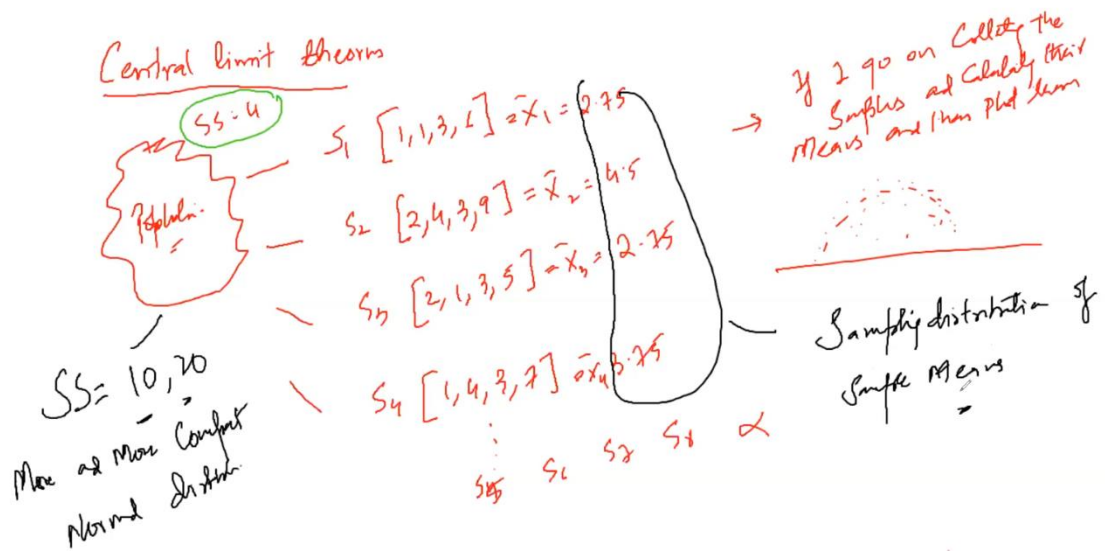 Central limit theorem
SS = 4
Population
S1 [1, 1, 3, 6] = x̄1 = 2.75
S2 [2, 4, 3, 9] = x̄2 = 4.5
S3 [2, 1, 3, 5] = x̄3 = 2.75
S4 [1, 4, 3, 7] = x̄4 3.75
S5 S6 S7 S8 ∝
→ If I go on Collecting the
Samples and Calculating their
Means and then plot them
Sampling distribution of
Sample Means
SS = 10, 20
More and More Compact
Normal